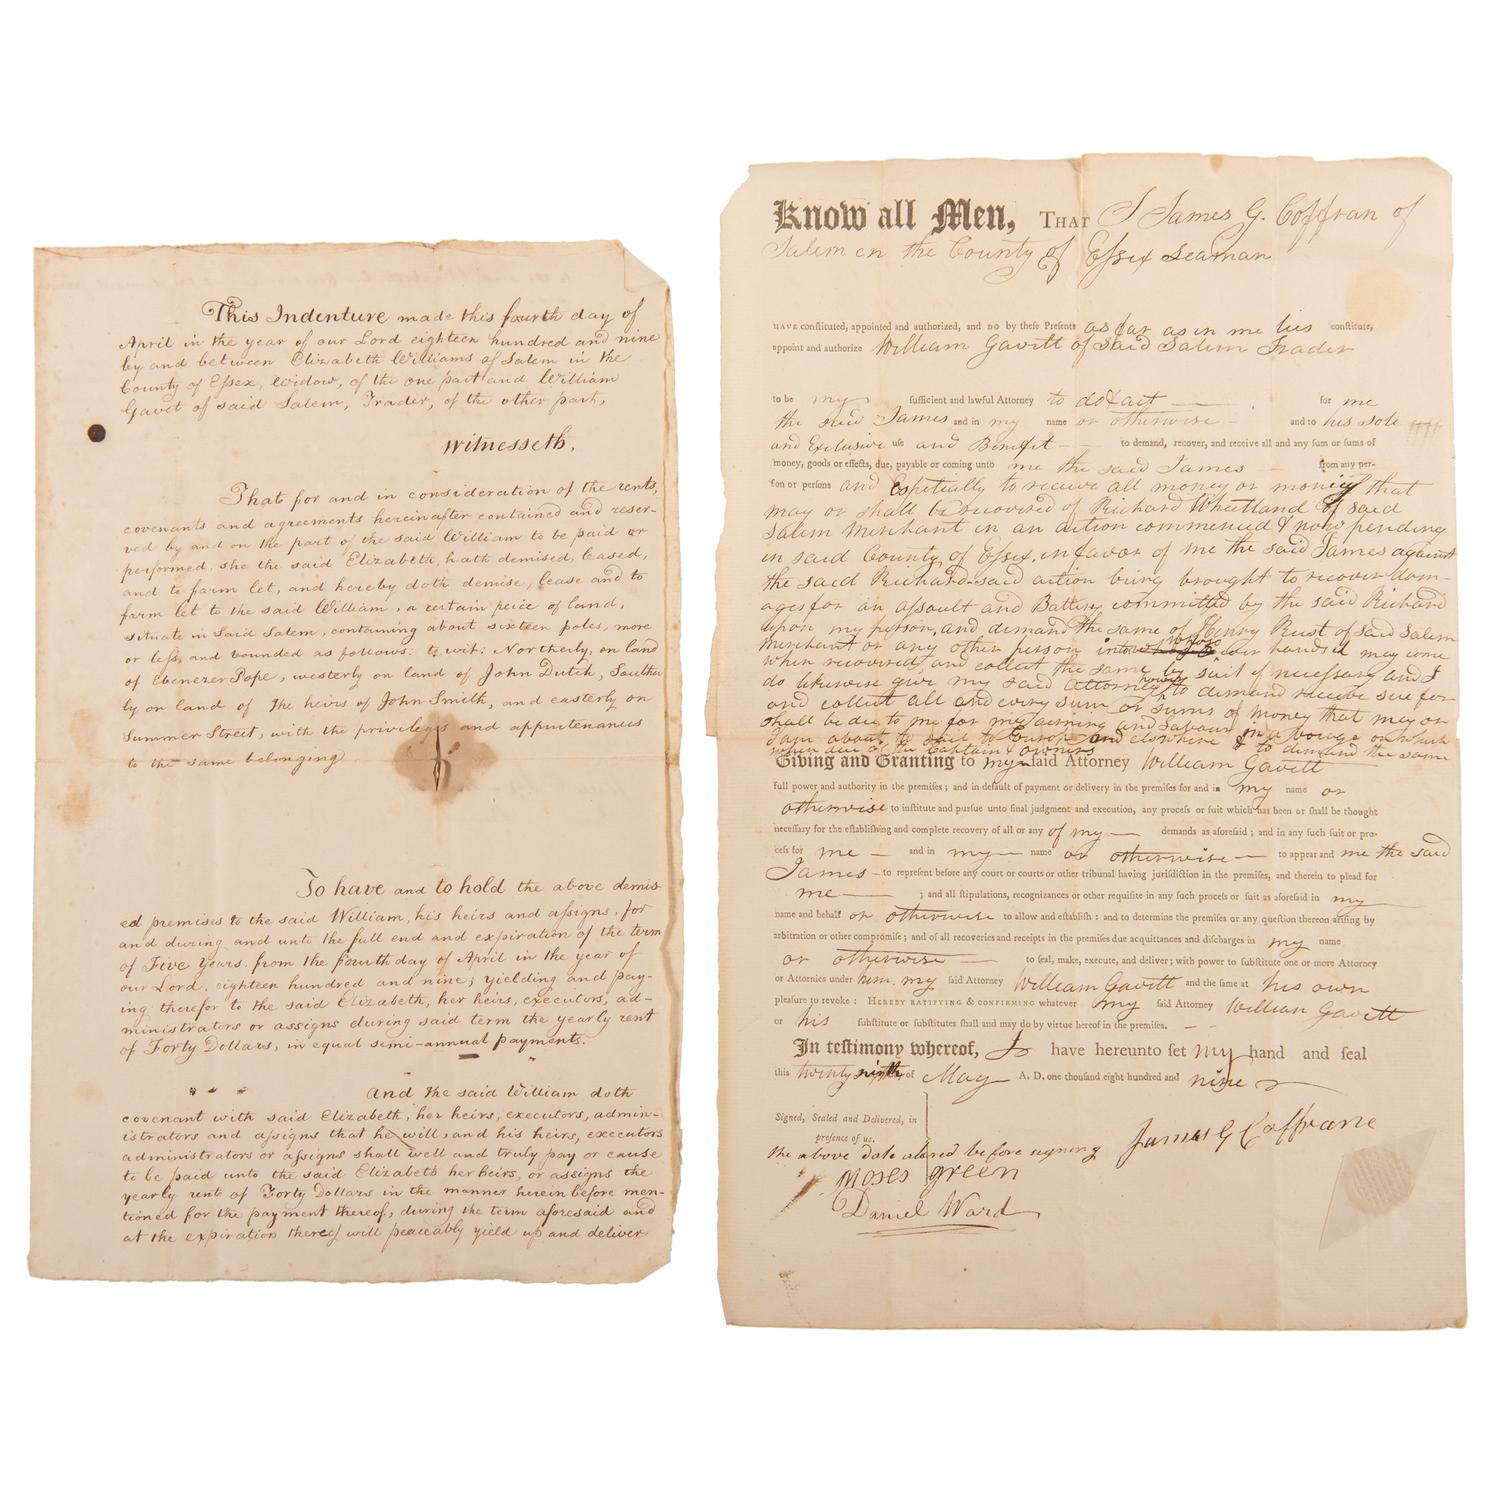 This Indenture made this fourth day of
April in the year of our Lord eighteen hundred and nine
by and between Elizabeth Williams of Salem in the
County of Eſsex, Widow, of the one part and William
Gavet of said Salem, Trader, of the other part,
Witnesseth,
That for and in consideration of the rents,
covenants and agreements hereinafter contained and reser-
ved by and on the part of the said William to be paid or
performed, she the said Elizabeth, hath demised, leased,
and to farm let, and hereby doth demise, lease and to
farm let to the said William, a certain peice of land,
situate in Said Salem, containing about sixteen poles, more
or leſs, and bounded as follows: to wit: Northerly, on land
of Ebenezer Pope, westerly on land of John Dutch, Souther
ly on land of the heirs of John Smith, and easterly on
Summer Street, with the privileges and appurtenances
to the same belonging
To have and to hold the above demis
ed premises to the said William, his heirs and aſsigns, for
and during and unto the full end and expiration of the term
of Five Years from the fourth day of April in the year of
our Lord, eighteen hundred and nine; yielding and pay-
ing therefor to the said Elizabeth, her heirs, executors, ad-
ministrators or assigns during said term the yearly rent
of Forty Dollars, in equal semi-annual payments.
And the said William doth
covenant with said Elizabeth, her heirs, executors, admin-
istrators and aſsigns that he will, and his heirs, executors
administrators or aſsigns shall well and truly pay or cause
to be paid unto the said Elizabeth her heirs, or assigns the
yearly rent of Forty Dollars in the manner herein before men-
tioned for the payment thereof, during the term aforesaid and
at the expiration thereof will peaceably yield up and deliver
Know all Men, THAT I James G. Coffran of
Salem in the County of Eſsex Seaman
HAVE conſtituted, appointed and authorized, and DO by theſe Preſents as far as in me lies conſtitute,
appoint and authorize William Gavitt of said Salem Trader
to be my ſufficient and lawful Attorney to do & act for me
the said James and in my name or otherwise and to his sole
and Exclusive uſe and Benefit to demand, recover, and receive all and any ſum or ſums of
money, goods or effects, due, payable or coming unto me the said James from any per-
ſon or perſons and Espetially to receive all money or moneys that
may or shall be recovered of Richard Wheatland of said
Salem Merchant in an action commenced & now pending
in said County of Eſsex, in favor of me the said James against
the said Richard - said action being brought to recover dam-
ages for an aſsault and Battery committed by the said Richard
upon my person, and demand the same of Henry Rust of said Salem
Merchant or any other person into hands it may come
when recovered, and collect the same by suit if neceſsary and I
do likewise give my said Attorney to demand receive sue for
and collect all and every sum or sums of money that may or
shall be due to me for my earning and Labour in a voiage on which
I am about to sail to Europe and elsewhere & to demand the same
when due of the Captain & owners
Giving and Granting to my ſaid Attorney William Gavitt
full power and authority in the premiſes; and in default of payment or delivery in the premiſes for and in my name or
otherwise to inſtitute and purſue unto final judgment and execution, any proceſs or ſuit which has been or ſhall be thought
neceſſary for the eſtabliſhing and complete recovery of all or any of my demands as aforeſaid; and in any ſuch ſuit or pro-
ceſs for me and in my name or otherwise to appear and me the said
James to repreſent before any court or courts or other tribunal having juriſdiction in the premiſes, and therein to plead for
me ; and all ſtipulations, recognizances or other requiſite in any ſuch proceſs or ſuit as aforeſaid in my
name and behalf or otherwise to allow and eſtabliſh: and to determine the premiſes or any queſtion thereon ariſing by
arbitration or other compromiſe; and of all recoveries and receipts in the premiſes due acquittances and diſcharges in my name
or otherwise to ſeal, make, execute, and deliver; with power to ſubſtitute one or more Attorney
or Attornies under him my ſaid Attorney William Gavitt and the ſame at his own
pleaſure to revoke: HEREBY RATIFYING & CONFIRMING whatever my ſaid Attorney William Gavitt
or his ſubſtitute or ſubſtitutes ſhall and may do by virtue hereof in the premiſes.
In teſtimony whereof, I have hereunto ſet my hand and ſeal
this twenty ninth of May A. D. one thouſand eight hundred and nine
Signed, Sealed and Delivered, in
preſence of us.
the above date altered before signing James G Coffrane
Moses Green
Daniel Ward